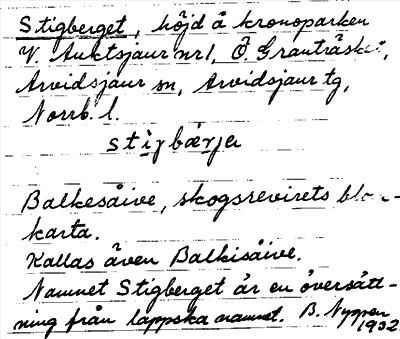 Stigberget, höjd å kronoparken
V. Auktsjaur nr1, Ö. Granträsket,
Arvidsjaur sn, Arvidsjaur tg,
Norrb. l.
stigbärja
Balkesåive, skogsrevirets
karta.
Kallas även Balkisåive.
Namnet Stigberget är en översätt-
ning från lappska namnet. B. Nygren
1932